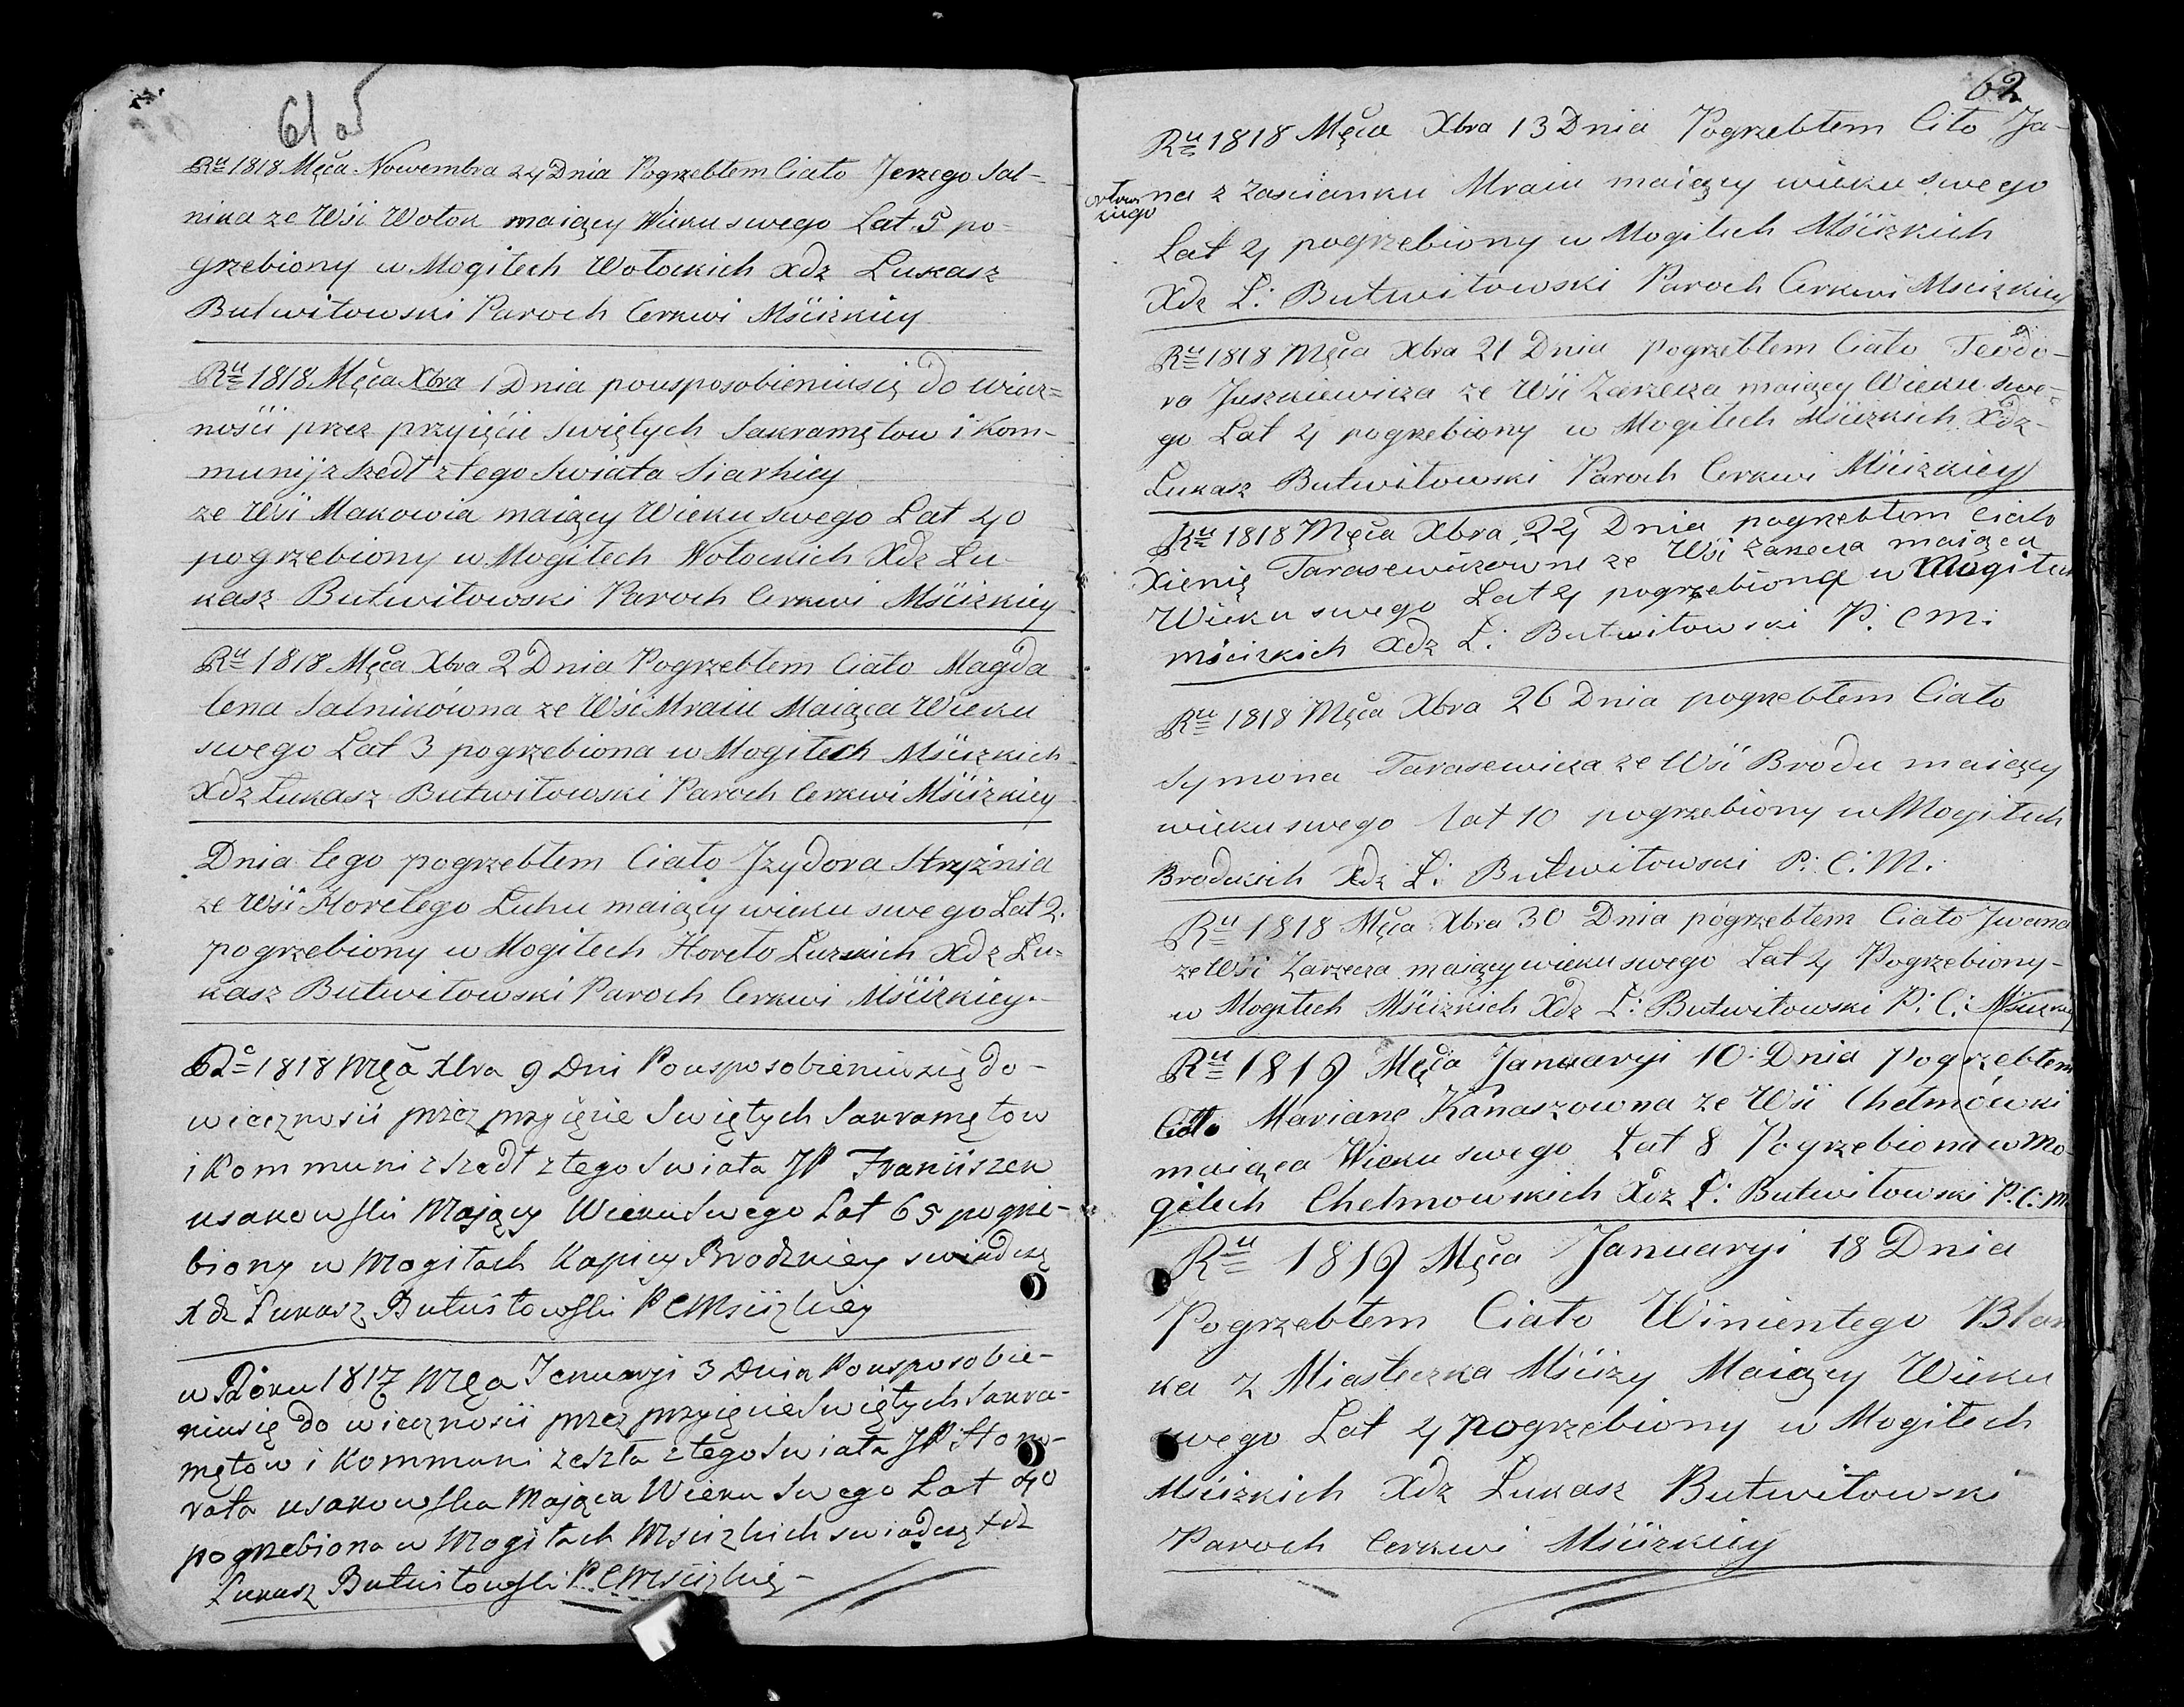 61 об
Ru 1818 Męca Nowembra 24 Dnia Pogrzebłem Ciało Jerzego Sal-
nika ze Wsi Wołok maiący Wieku swego Lat 5 po-
grzebiony w Mogiłech Wołockich Xdz Łukasz
Butwiłowski Paroch Cerkwi Mścizkiey
Ru 1818 Męca Xbra 1 Dnia pousposobieniusię do wiecz=
ności przez przyięcie Swiętych Sakramętow i Kom-
munij zszedł ztego Swiata Siarhiey
ze Wsi Makowia maiący Wieku swego Lat 40
pogrzebiony w Mogiłech Wołockich Xdz Łu-
kasz Butwiłowski Paroch Cerkwi Mścizkiey
Ru 1818 Męca Xbra 2 Dnia Pogrzebłem Ciało Magda
lena Salnikówna ze Wsi Mraiu Maiąca Wieku
swego Lat 3 pogrzebiona w Mogiłech Mścizkich
Xdz Łukasz Butwiłowski Paroch Cerkwi Mścizkiey
Dnia tego pogrzebłem Ciało Jzydora Stryżnia
ze Wsi Horełego Łuhu maiący wieku swego Lat 2.
pogrzebiony w Mogiłech Horeło Łuzkich Xdz Łu=
kasz Butwiłowski Paroch Cerkwi Mścizkiey.-
1818 Męca Xbra 9 Dni Pousposobieniusię do-
wieczności przez przyięcie Swiętych Sakramętow
i Kommuni zszedł ztego Swiata JP Franciszek
usakowski Mający Wieku Swego Lat 65 pogrze-
biony w Mogiłach Kaplicy Brodzkiey swiadczę
Xdz Łukasz Butwiłowski P C Mścizkiey
w Roku 1817 Męca Januaryi 3 Dnia Pousposobie-
niusię do wieczności przez przyięcie Swiętych Sakra-
mętow i Kommuni zeszła ztego Swiata JP Hono-
rata usakowska Mająca Wieku Swego Lat 40
pogrzebiona w Mogiłach Mścizkich swiadczę Xdz
Łukasz Butwiłowski P C Mścizkiey-
62
Ru 1818 Męca Xbra 13 Dnia Pogrzebłem Ciło Ja-
na z zascianku Mraiu maiący wieku swego
Lat 4 pogrzebiony w Mogiłech Mścizkich
Xdz Ł: Butwiłowski Paroch Cerkwi Mścizkiey
Ru 1818 Męca Xbra 21 Dnia pogrzebłem Ciało Teodo-
ra Juszkiewicza ze Wsi Zarzecza maiący Wieku swe=
go Lat 4 pogrzebiony w Mogiłech Mścizkich Xdz-
Łukasz Butwiłowski Paroch Cerkwi Mścizkiey
Ru 1818 Męca Xbra 24 Dnia pogrzebłem Ciało
Xienię Tarasewiczowne ze Wsi Zarzecza maiąca
Wieku swego Lat 4 pogrzebiona w Mogiłech
Mścizkich Xdz Ł: Butwiłowski P: C M:
Ru 1818 Męca Xbra 26 Dnia pogrzebłem Ciało
Symona Tarasewicza ze Wsi Brodu maiący
wieku swego lat 10 pogrzebiony w Mogiłech
Brodzkich Xdz Ł: Butwiłowski P: C: M:
Ru 1818 Męca Xbra 30 Dnia pogrzebłem Ciało Jwana
ze Wsi Zarzecza maiący wieku swego Lat 4 Pogrzebiony-
w Mogiłech Mścizkich Xdz Ł: Butwiłowski P: C: Mścizkiey
Ru 1819 Męca Januaryi 10 Dnia Pogrzebłem
Ciało Marianę Kanaszowna ze Wsi Chełmówki
maiąca Wieku swego Lat 8 Pogrzebiona w Mo-
giłech Chełmowskich Xdz Ł: Butwiłowski P: C: M
Ru 1819 Męca Januaryi 18 Dnia
Pogrzebłem Ciało Wincentego Blan
ka z Miasteczka Mścizy Maiący Wieku
swego Lat 4 pogrzebiony w Mogiłech
Mścizkich Xdz Łukasz Butwiłowski
Paroch Cerkwi Mścizkiey